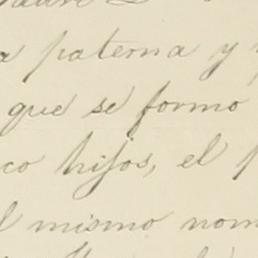 paterna y
que se formo
co hijos, el
l mismo nom